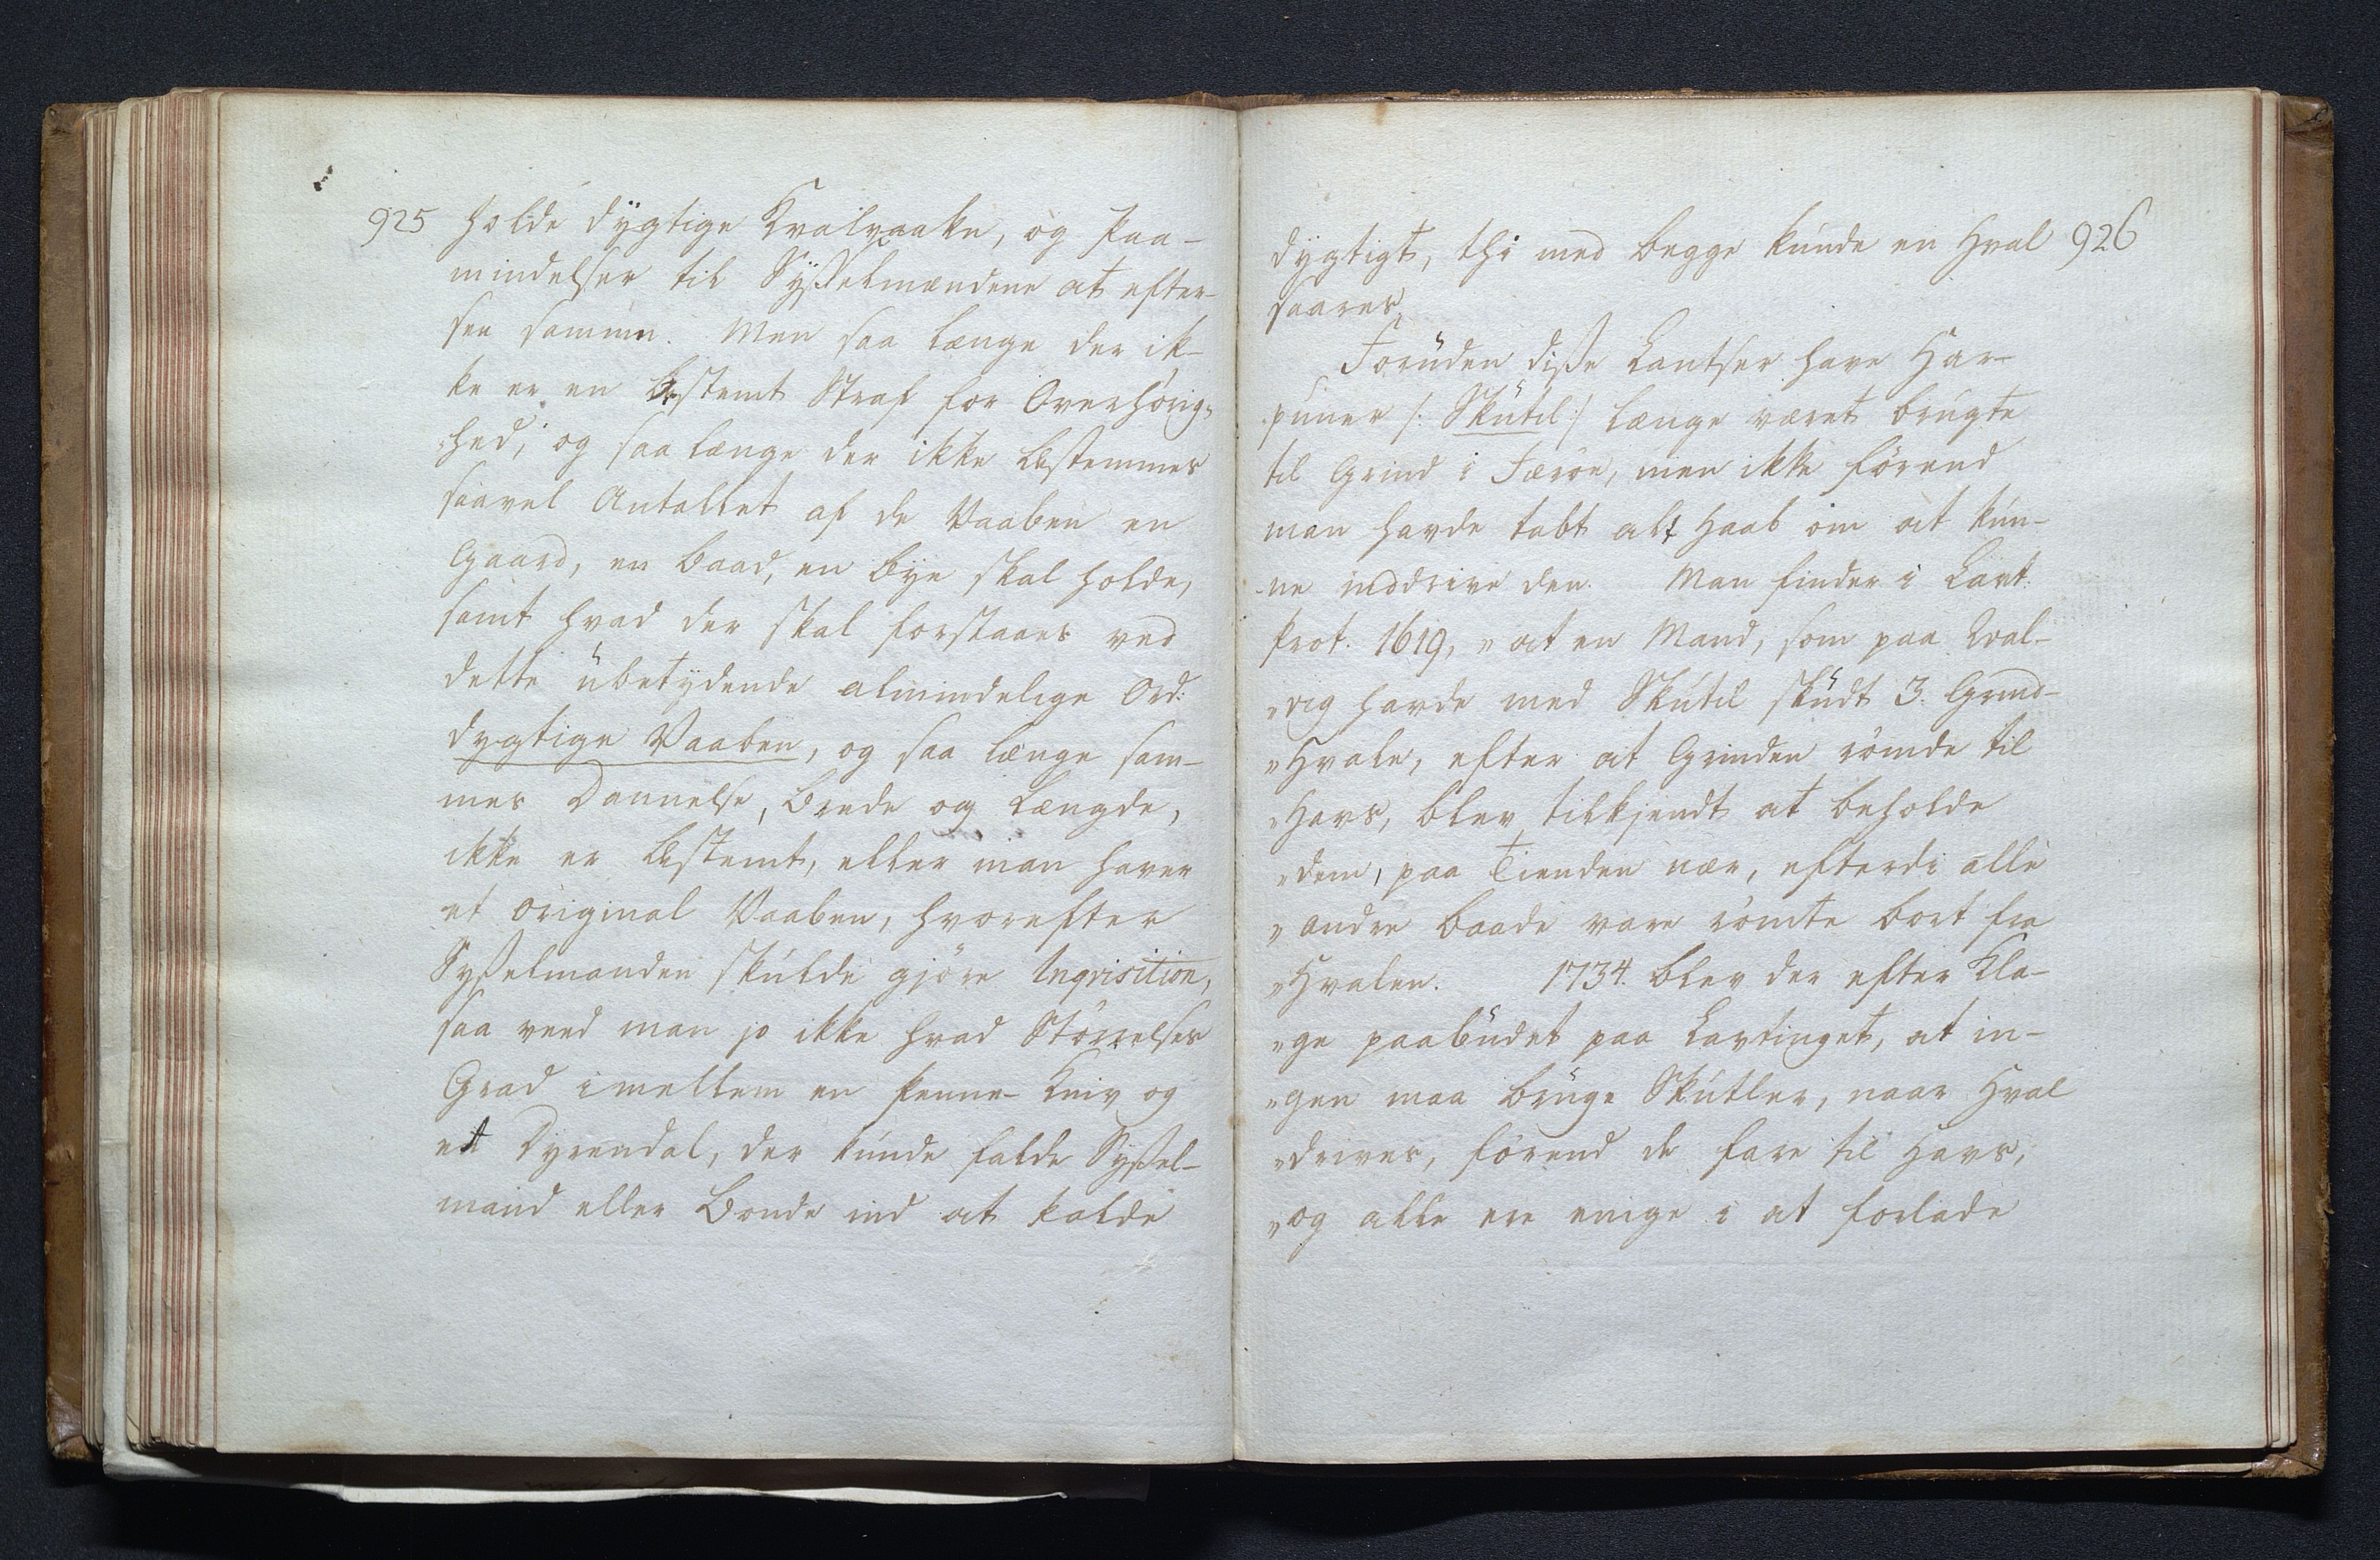 925 holde dygtige Hvalvaaben, og Paa-
mindelser til Sysselmændene at efter-
see samme. Men saa længe der ik-
ke er en bestemt Straf for Overhörig-
hed, og saa længe der ikke bestemmes
saavel Antallet af de Vaaben en
Gaard, en Baad, en Bye skal holde,
samt hvad der skal forstaaes ved
dette ubetydende almindelige Ord:
dygtige Vaaben, og saa længe sam-
mes Dannelse, Brede og Længde,
ikke er bestemt, eller man haver
et original Vaaben, hvorefter
Sysselmanden skulde gjöre Inqvisition,
saa veed man jo ikke hvad Störrelses
Grad imellem en Penne-Kniv og
et Dyrendal, der kunde falde Syssel-
mand eller Bonde ind at kalde
dygtigt, thi med begge kunde en Hval 926
saares.
Foruden disse Lantser have Har-
puner /: Skutil :/ længe været brugte
til Grind i Færöe, men ikke förend
man havde tabt alt Haab om at kun-
ne inddrive den. Man finder i Lavt.
Prot. 1619, "at en Mand, som paa Qval-
"vig havde med Skutil skudt 3. Grind-
"Hvale, efter at Grinden römde til
"Havs, blev tilkjendt at beholde
"dem, paa Tienden nær, efterdi alle
"andre Baade vare römte bort fra
"Hvalen. 1734. blev der efter Kla-
"ge paabudet paa Lavtinget, at in-
"gen maa bruge Skutler, naar Hval
"drives, förend de fare til Havs,
"og alle ere enige i at forlade